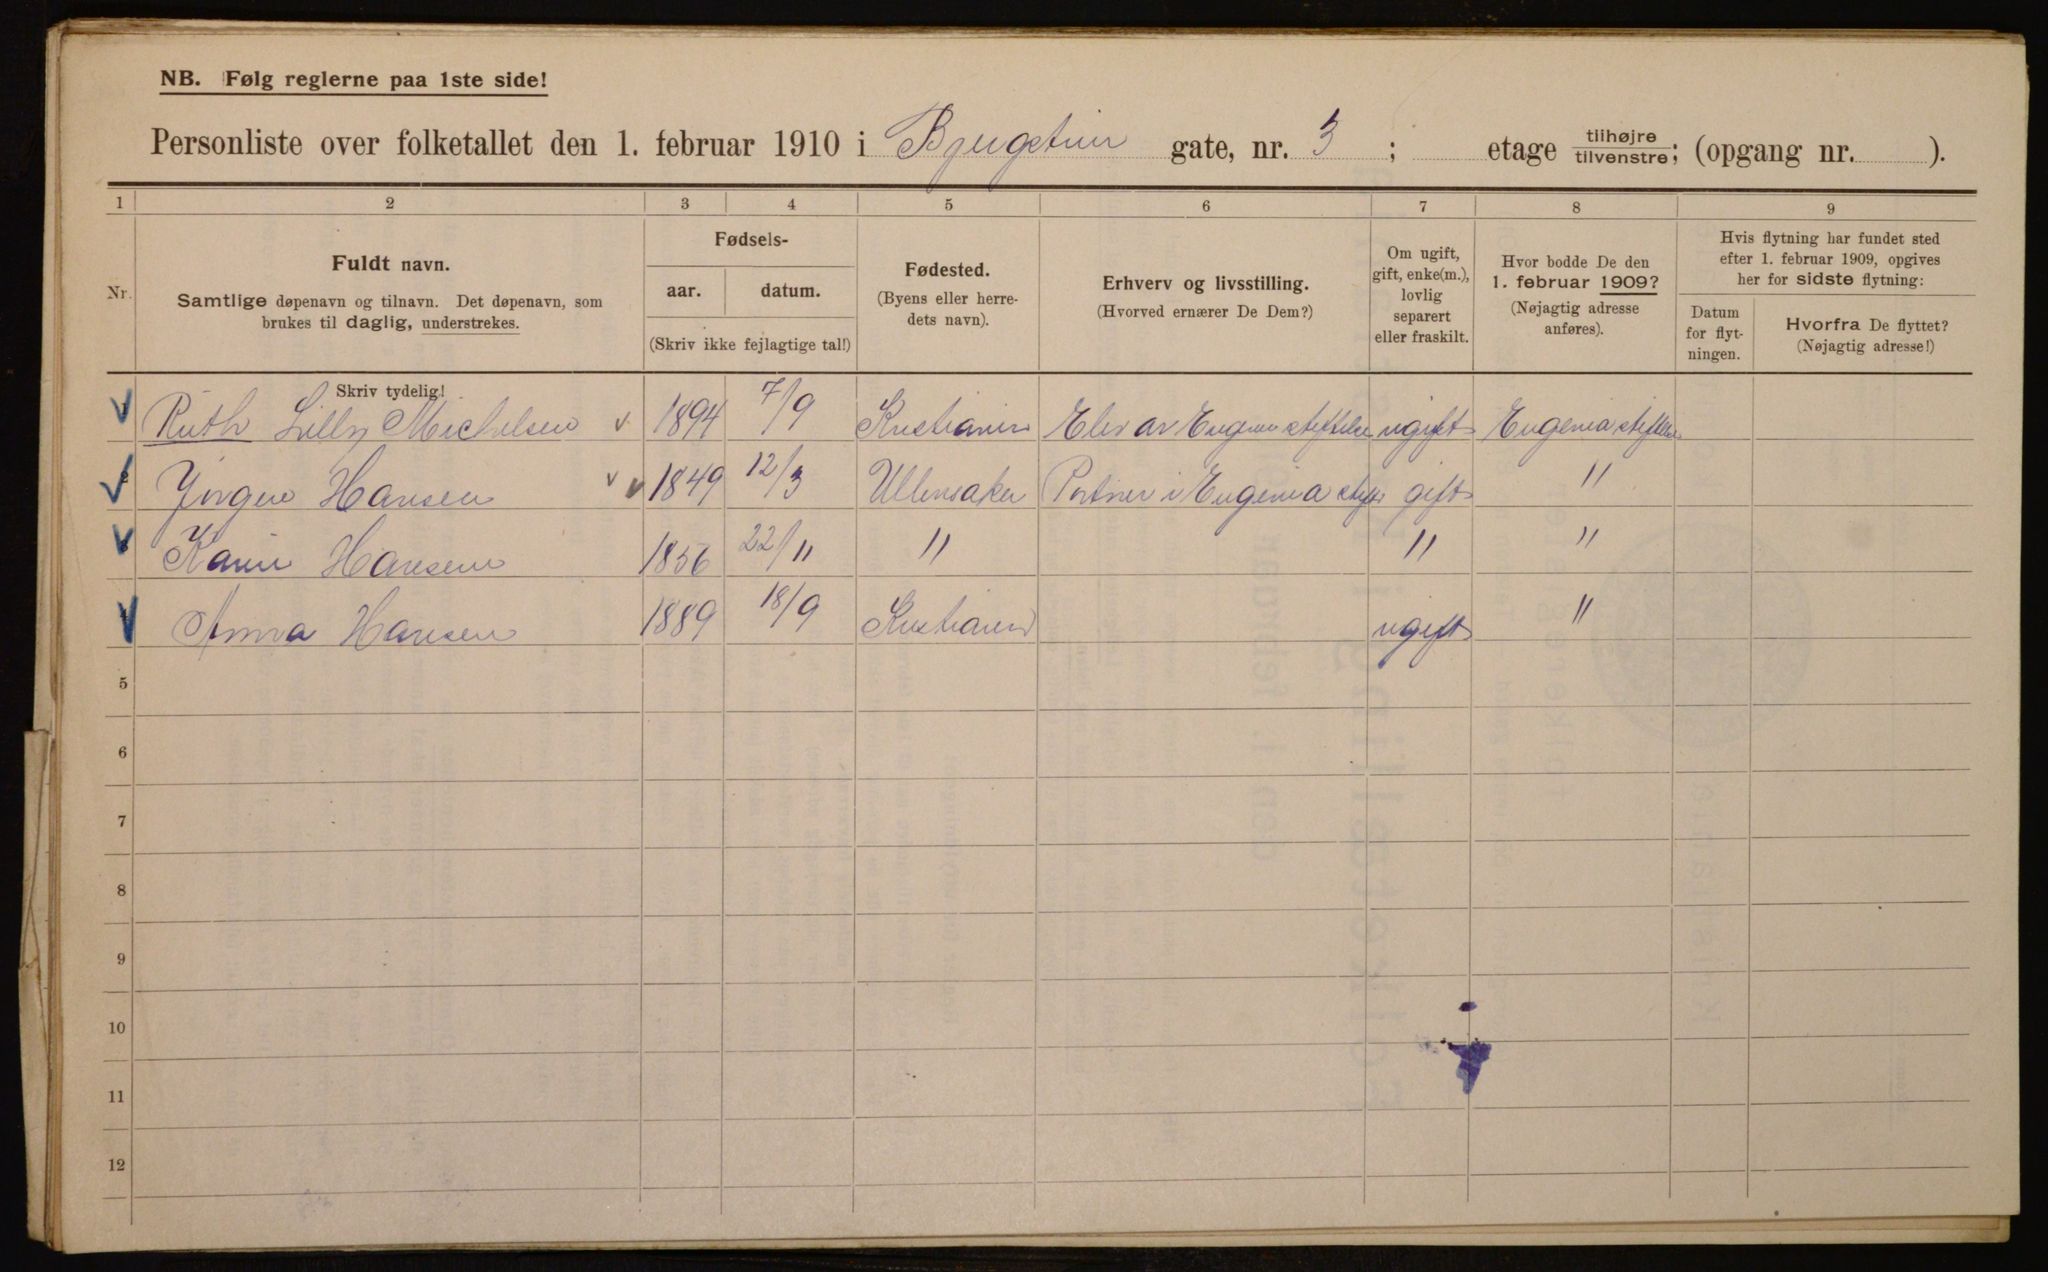 NB. Følg reglerne paa 1ste side!
Personliste over folketallet den 1. februar 1910 i Bjergstien gate, nr. 3 ; etage tilhøjre tilvenstre; (opgang nr. ).
1 2 3 4 5 6 7 8 9
Nr.
Fuldt navn.
Samtlige døpenavn og tilnavn. Det døpenavn, som
brukes til daglig, understrekes.
Fødsels-
aar. datum.
(Skriv ikke fejlagtige tal!)
Fødested.
(Byens eller herre-
dets navn).
Erhverv og livsstilling.
(Hvorved ernærer De Dem?)
Om ugift,
gift, enke(m.),
lovlig
separert
eller fraskilt.
Hvor bodde De den
1. februar 1909?
(Nøjagtig adresse
anføres).
Hvis flytning har fundet sted
efter 1. februar 1909, opgives
her for sidste flytning:
Datum
for flyt-
ningen.
Hvorfra De flyttet?
(Nøjagtig adresse!)
Skriv tydelig!
Ruth Lilly Michelsen 1894 7/9 Kristiania Elev av Eugenia stiftelse ugift Eugenia stiftelse
2 Jørgen Hansen 1849 12/3 Ullensaker Portner i Eugenia stift gift "
Karen Hansen 1856 22/11 " " "
Anna Hansen 1889 18/9 Kristiania ugift "
5
6
7
8
9
10
11
12